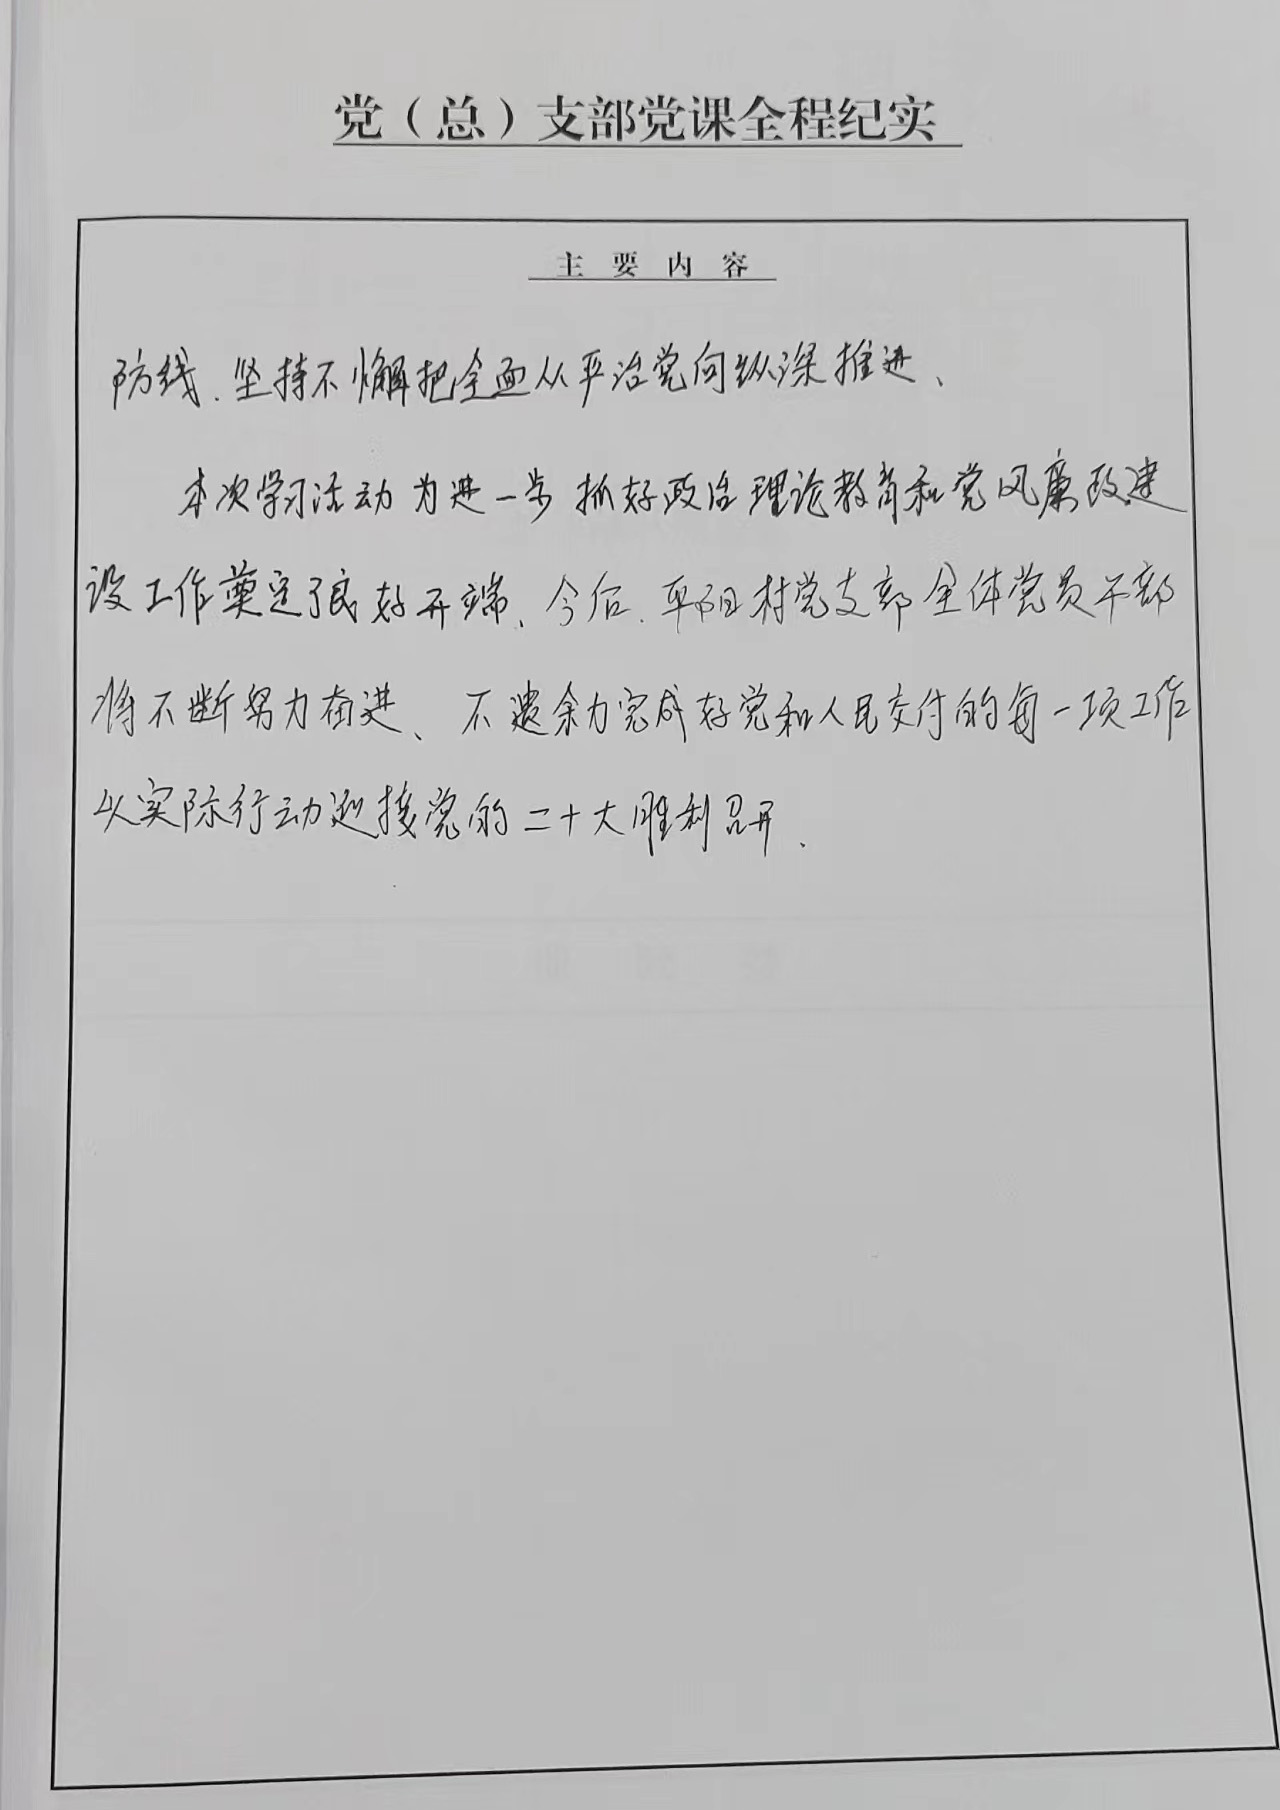 党（总）支部党课全程纪实
主要内容
防线、坚持不懈把全面从严治党向纵深推进、
本次学习活动为进一步抓好政治理论教育和党风廉政建
设工作奠定了良好开端、今后、平阳村党支部全体党员干部
将不断努力奋进、不遗余力完成好党和人民交付的每一项工作
以实际行动迎接党的二十大胜利召开、